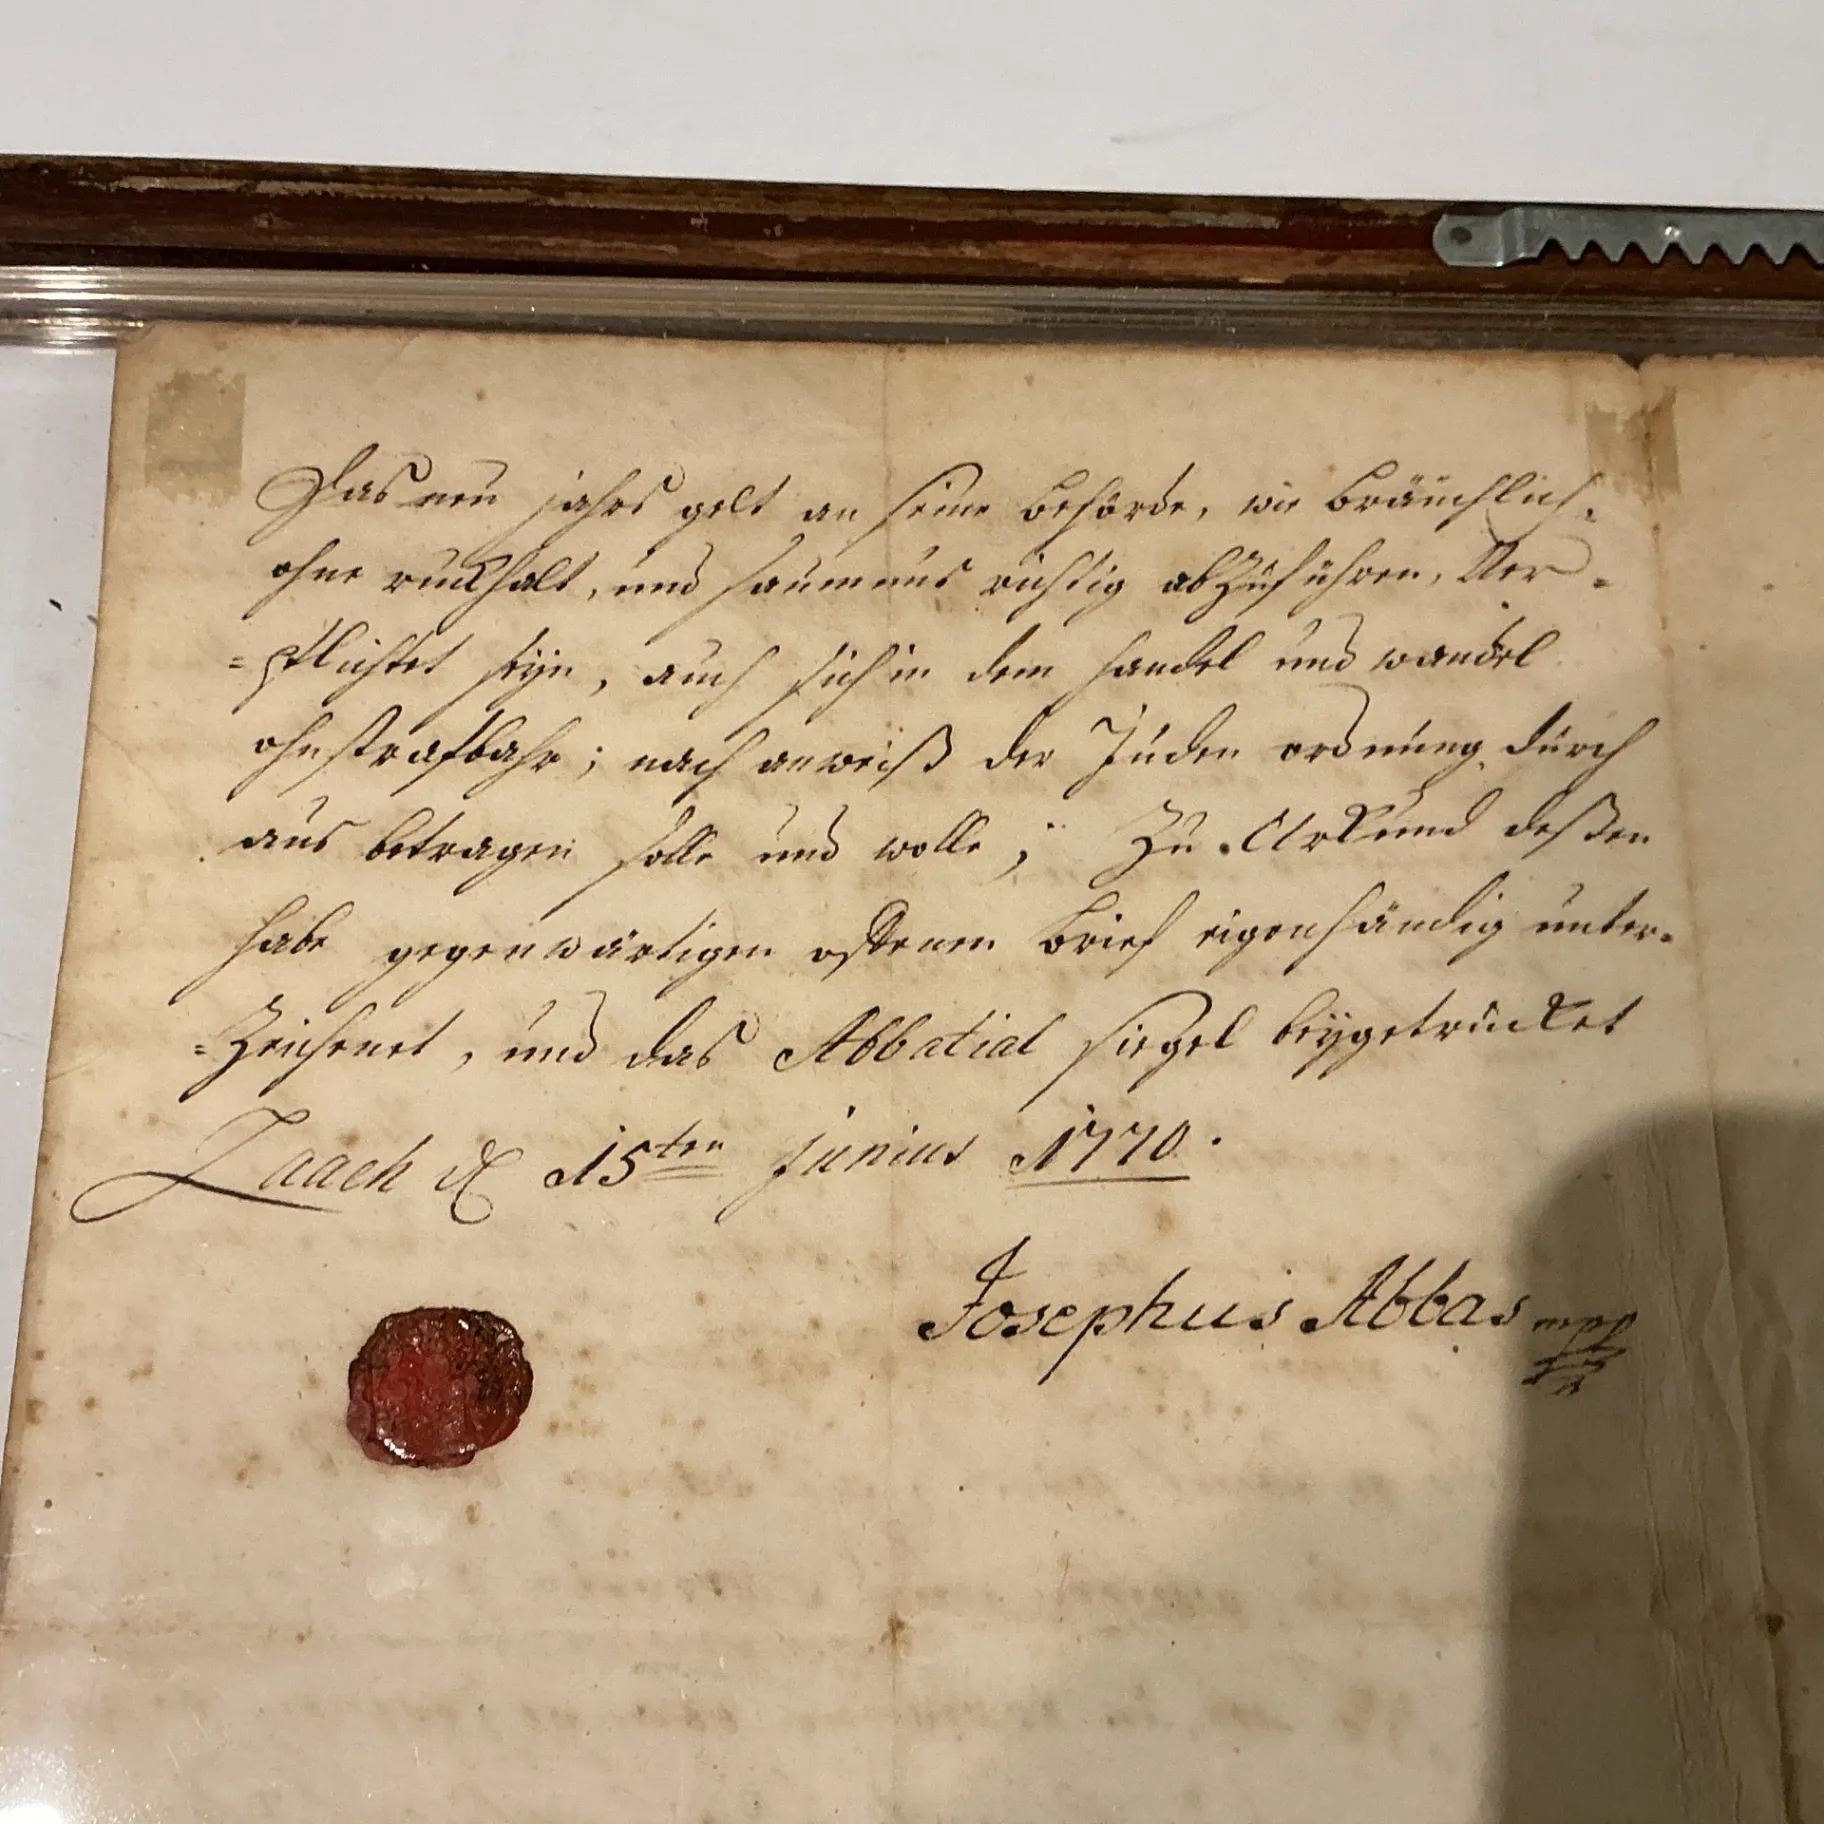 Das neu jahrs gelt an seine behörde, wie bräuchlich,
ohne ruckhalt, und saumnus richtig abzuführen, Ver-
=pflichtet seyn, auch sich in dem handel und wandel
ohnstrafbahr; nach anweiß der Juden ordnung durch
aus betragen solle und wolle; Zu Urkund deßen
habe gegenwärtigen offenen brief eigenhändig unter-
=Zeichnet, und das Abbatial siegel beygetrücket
Laach d 15ten junius 1770.
Josephus Abbas mpp